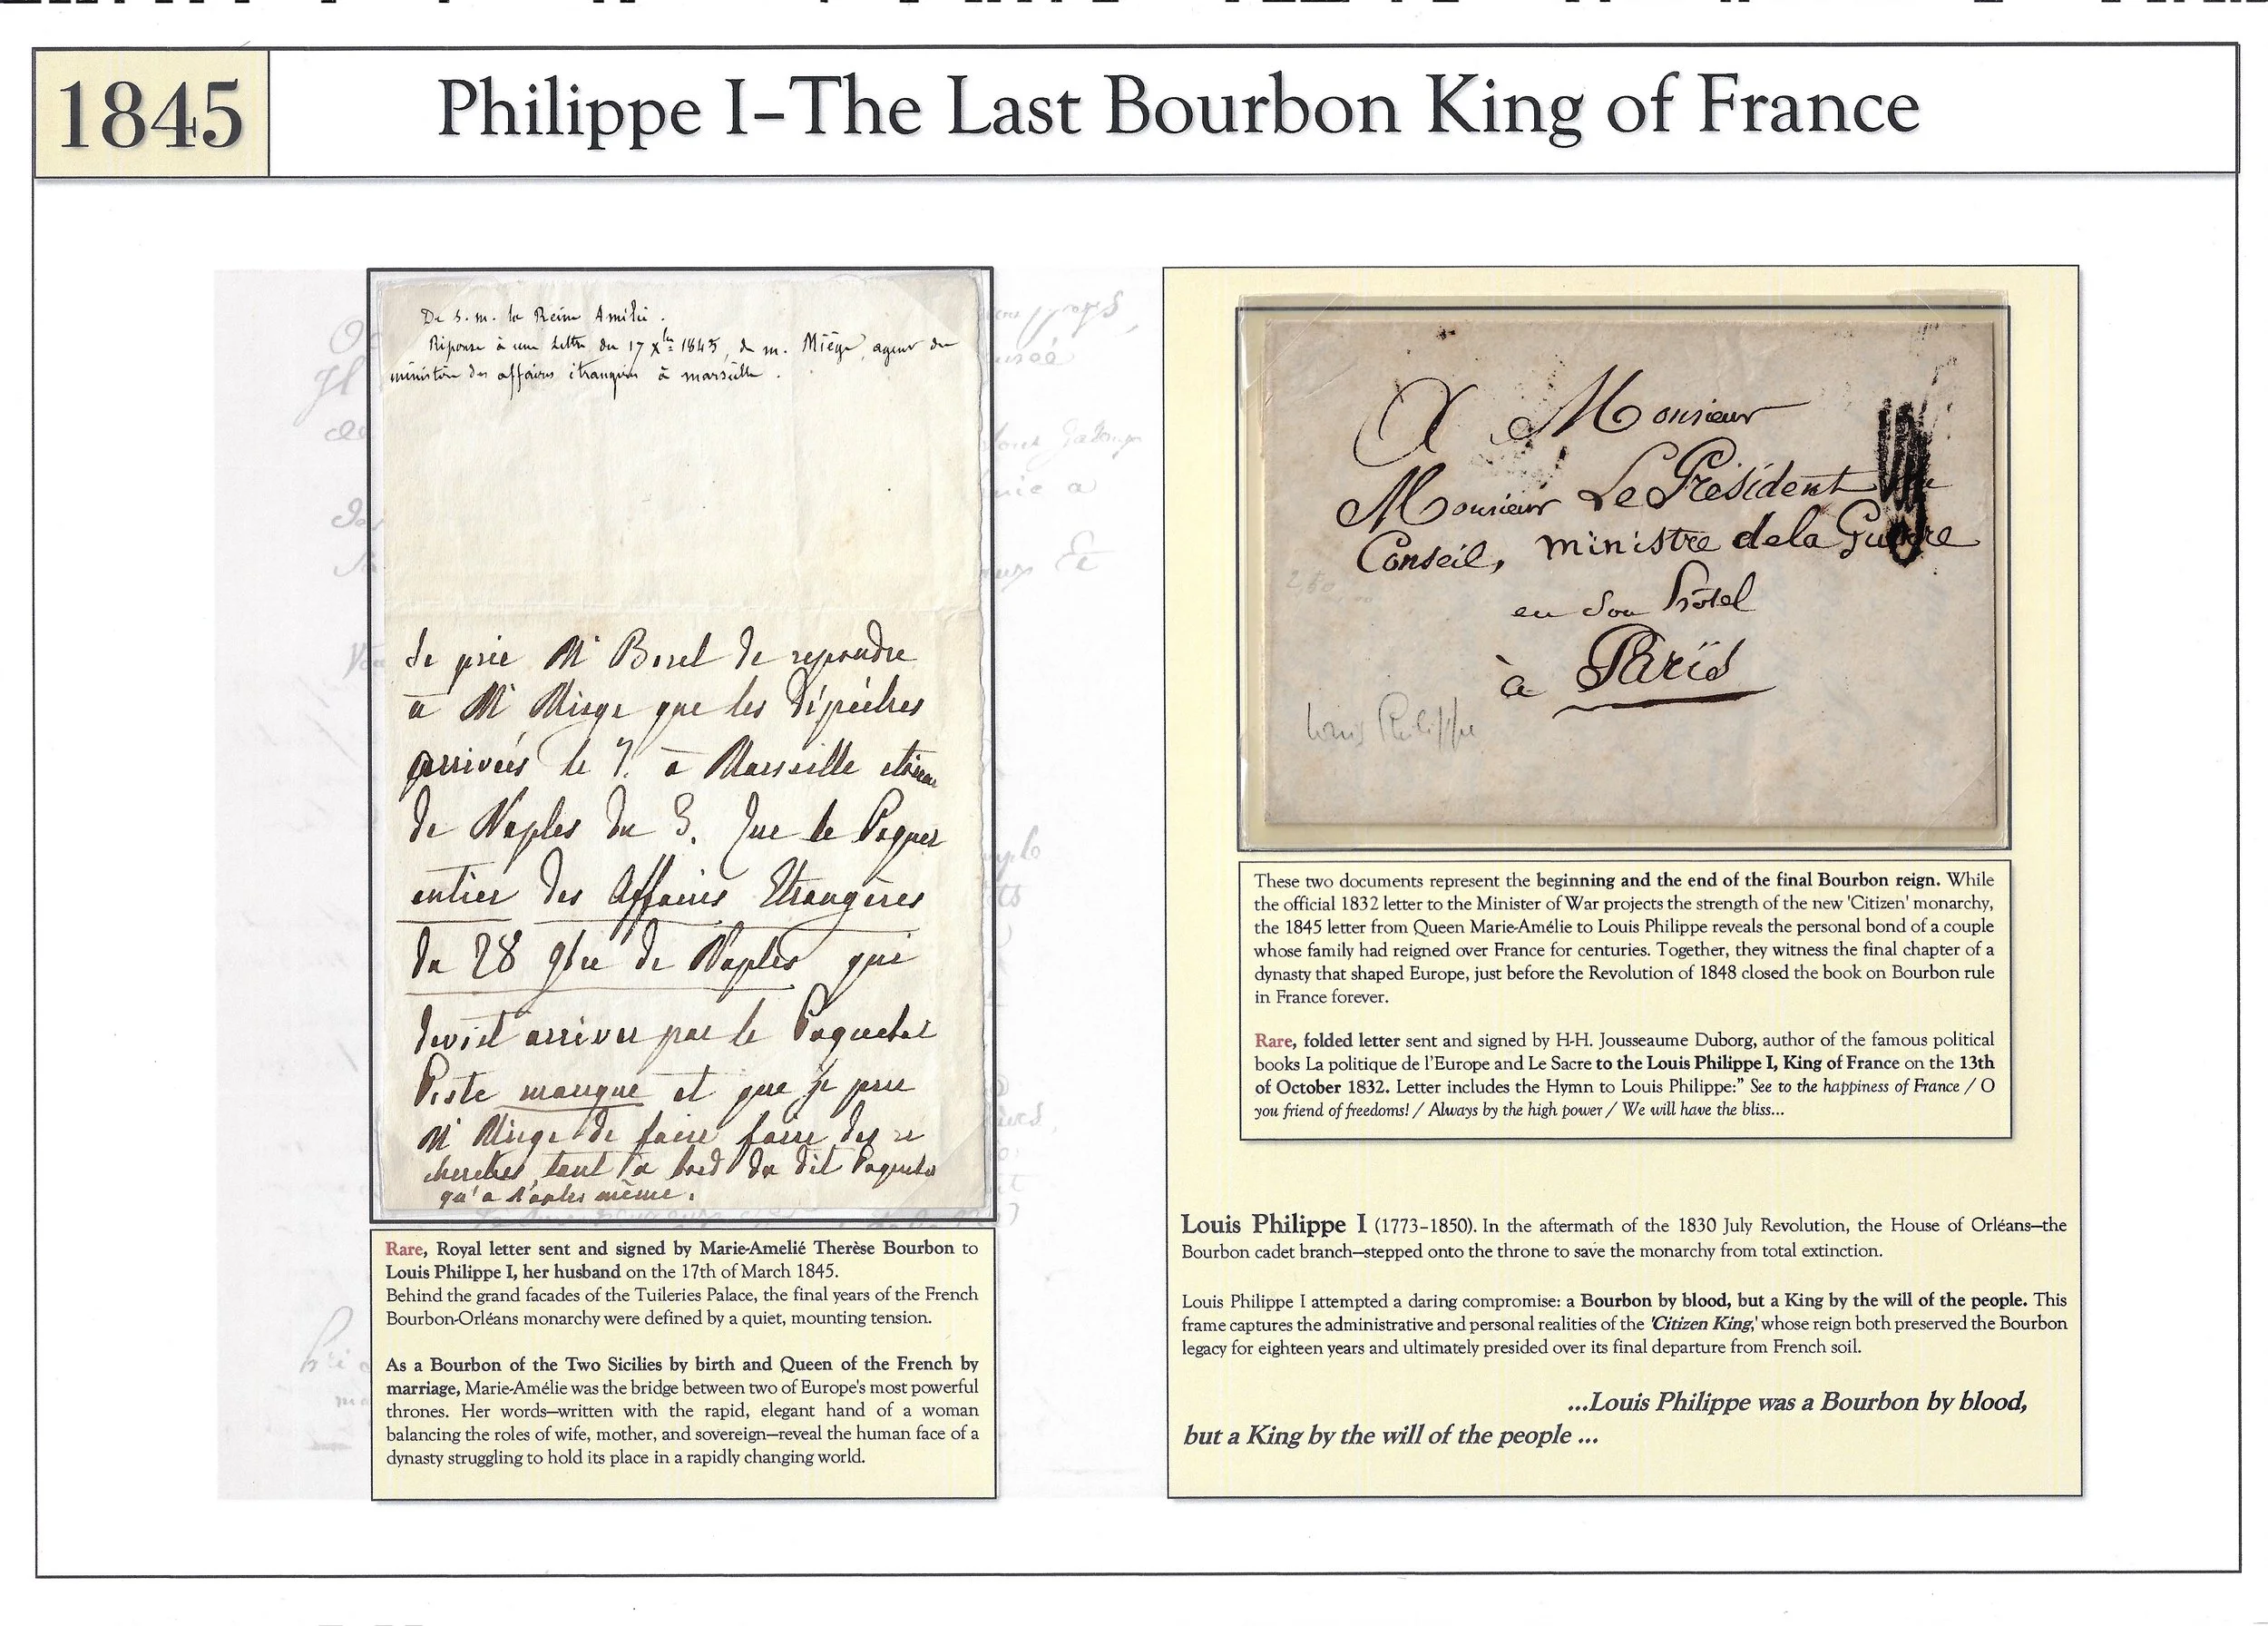 1845
Philippe I–The Last Bourbon King of France
De S. m. la Reine Amélie.
Réponse à une lettre du 17 Xbre 1845, de m. Miège, agent du
ministère des affaires étrangères à marseille.
Je prie Mr Borel de repondre
à Mr Miege que les dépêches
arrivées le 7. à Marseille
de Naples du 3. Que le Paquet
entier des Affaires Etrangères
du 28 9bre de Naples qui
devoit arriver par le Paquebot
Poste manque et que je prie
Mr Miege de faire faire des re
cherches, tant à bord du dit Paquebot
qu'a Naples même.
Rare, Royal letter sent and signed by Marie-Amelié Therèse Bourbon to
Louis Philippe I, her husband on the 17th of March 1845.
Behind the grand facades of the Tuileries Palace, the final years of the French
Bourbon-Orléans monarchy were defined by a quiet, mounting tension.
As a Bourbon of the Two Sicilies by birth and Queen of the French by
marriage, Marie-Amélie was the bridge between two of Europe's most powerful
thrones. Her words—written with the rapid, elegant hand of a woman
balancing the roles of wife, mother, and sovereign—reveal the human face of a
dynasty struggling to hold its place in a rapidly changing world.
A Monsieur
Monsieur Le Président du
Conseil, ministre de la Guerre
en son hôtel
à Paris
Louis Philippe
These two documents represent the beginning and the end of the final Bourbon reign. While
the official 1832 letter to the Minister of War projects the strength of the new 'Citizen' monarchy,
the 1845 letter from Queen Marie-Amélie to Louis Philippe reveals the personal bond of a couple
whose family had reigned over France for centuries. Together, they witness the final chapter of a
dynasty that shaped Europe, just before the Revolution of 1848 closed the book on Bourbon rule
in France forever.
Rare, folded letter sent and signed by H-H. Jousseaume Duborg, author of the famous political
books La politique de l'Europe and Le Sacre to the Louis Philippe I, King of France on the 13th
of October 1832. Letter includes the Hymn to Louis Philippe:” See to the happiness of France / O
you friend of freedoms! / Always by the high power / We will have the bliss...
Louis Philippe I (1773-1850). In the aftermath of the 1830 July Revolution, the House of Orléans—the
Bourbon cadet branch—stepped onto the throne to save the monarchy from total extinction.
Louis Philippe I attempted a daring compromise: a Bourbon by blood, but a King by the will of the people. This
frame captures the administrative and personal realities of the 'Citizen King,' whose reign both preserved the Bourbon
legacy for eighteen years and ultimately presided over its final departure from French soil.
...Louis Philippe was a Bourbon by blood,
but a King by the will of the people ...